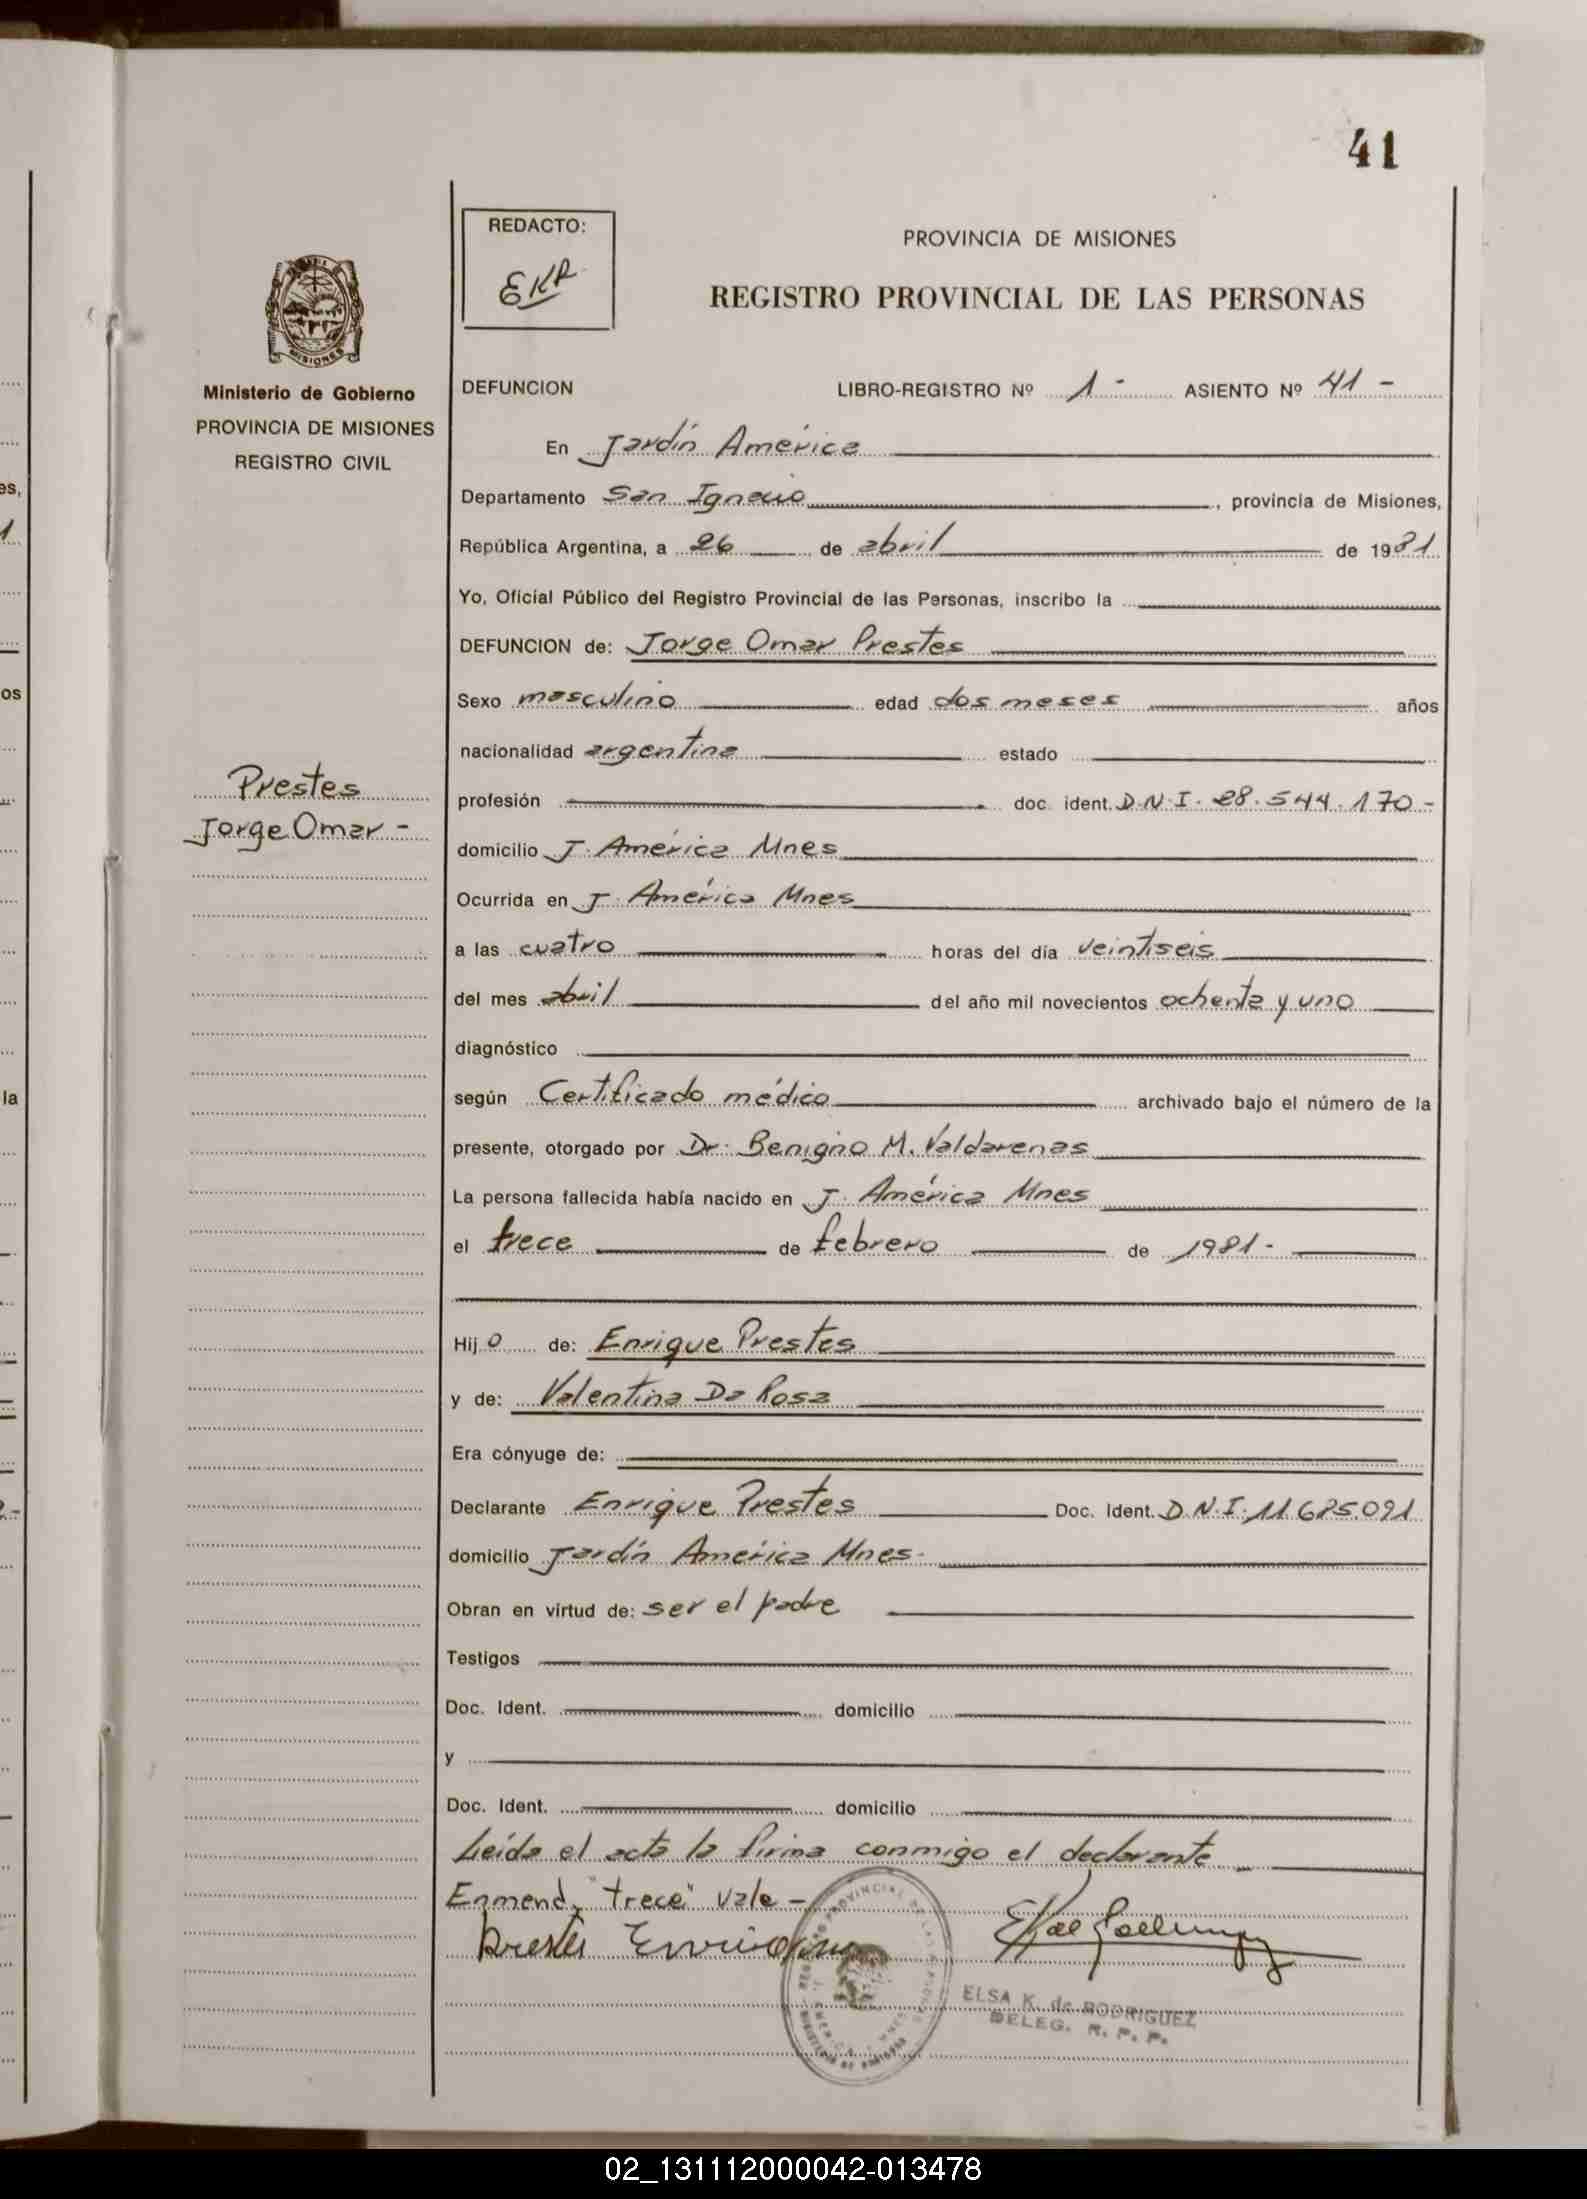 41
REDACTO:
EKR
PROVINCIA DE MISIONES
REGISTRO PROVINCIAL DE LAS PERSONAS
MISIONES
Ministerio de Gobierno
PROVINCIA DE MISIONES
REGISTRO CIVIL
DEFUNCION LIBRO-REGISTRO Nº 1- ASIENTO Nº 41-
En Jardín América
Departamento San Ignacio, provincia de Misiones,
República Argentina, a 26 de abril de 1981
Yo, Oficial Público del Registro Provincial de las Personas, inscribo la
DEFUNCION de: Jorge Omar Prestes
Sexo masculino edad dos meses años
nacionalidad argentina estado
Prestes
Jorge Omar-
profesión doc. ident. D.N.I. 28.544.170-
domicilio J. América Mnes
Ocurrida en J. América Mnes
a las cuatro horas del día veintiseis
del mes abril del año mil novecientos ochenta y uno
diagnóstico
según Certificado médico archivado bajo el número de la
presente, otorgado por Dr. Benigno M. Valdarenas
La persona fallecida había nacido en J. América Mnes
el trece de febrero de 1981-
Hijo de: Enrique Prestes
y de: Valentina Da Rosa
Era cónyuge de:
Declarante Enrique Prestes Doc. Ident. D.N.I. 11.685.091
domicilio Jardín América Mnes.
Obran en virtud de: ser el padre
Testigos
Doc. Ident. domicilio
y
Doc. Ident. domicilio
Leída el acta la firma conmigo el declarante
Enmend. "trece" vale-
Prestes
ELSA K. de RODRIGUEZ
DELEG. R. P. P.
02_131112000042-013478